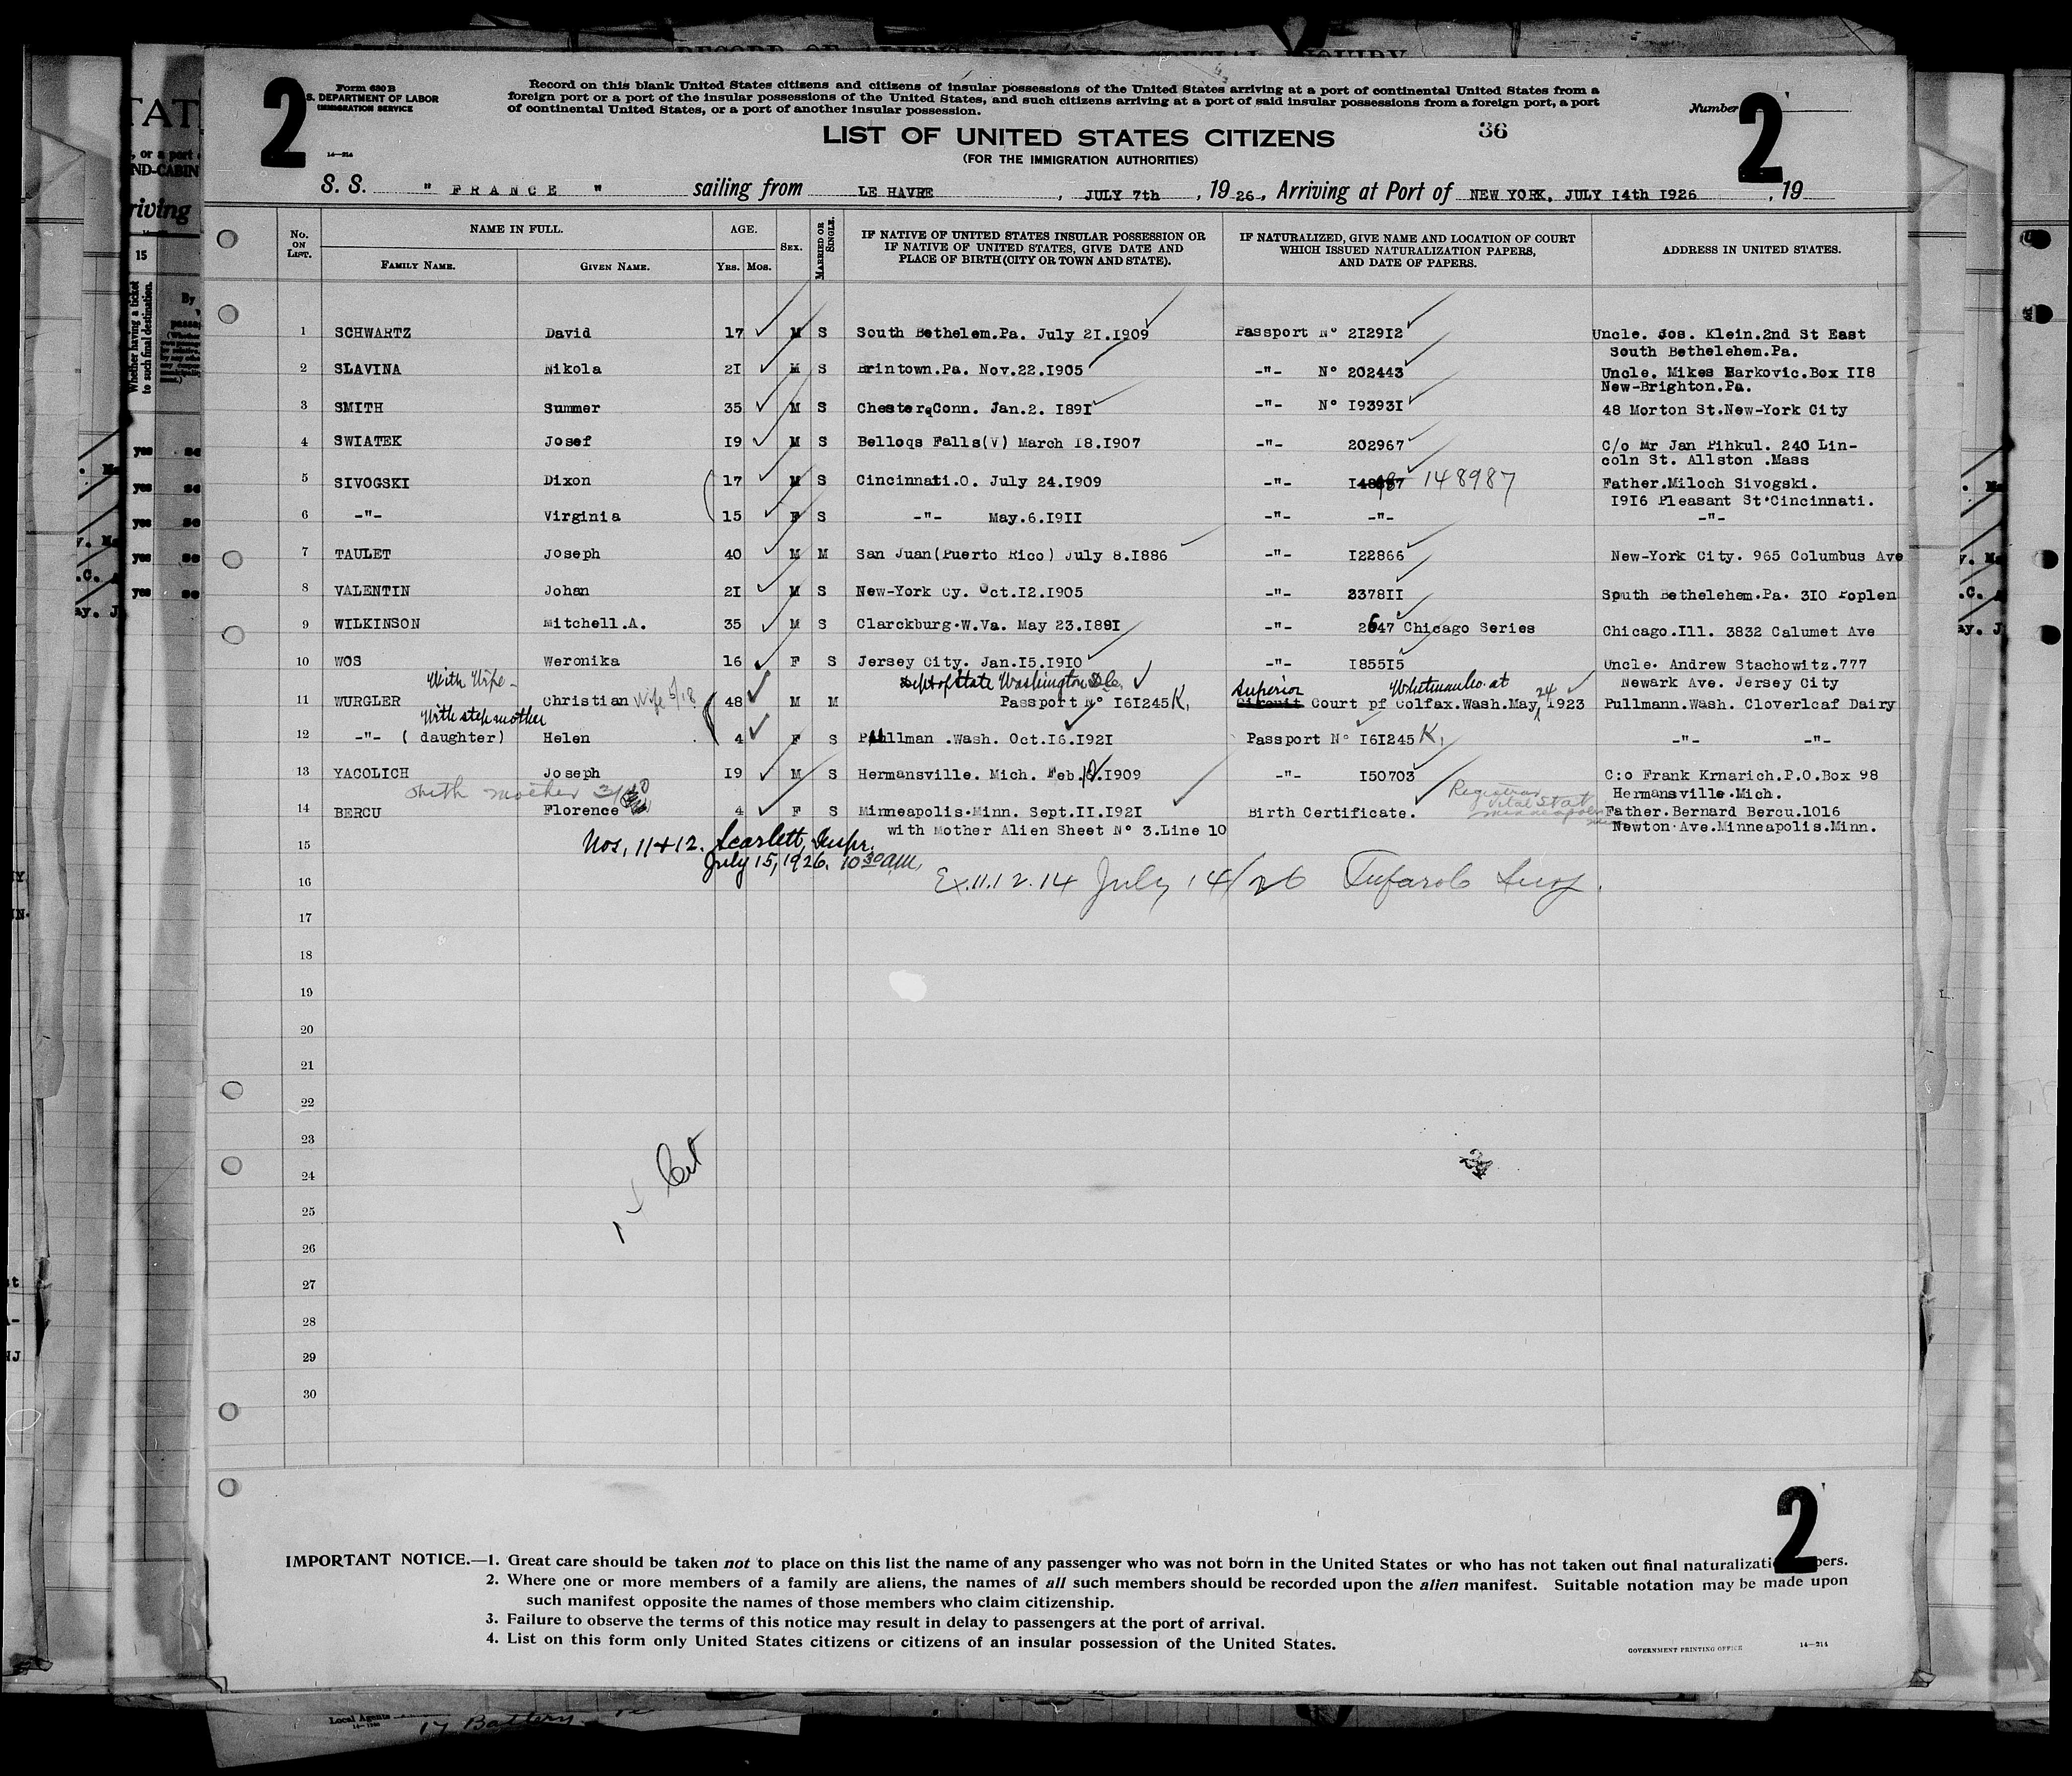 RECORD OF ALIENS HELD FOR SPECIAL INQUIRY
2
Form 630 B
S. DEPARTMENT OF LABOR
IMMIGRATION SERVICE
14—214
Record on this blank United States citizens and citizens of insular possessions of the United States arriving at a port of continental United States from a
foreign port or a port of the insular possessions of the United States, and such citizens arriving at a port of said insular possessions from a foreign port, a port
of continental United States, or a port of another insular possession.
Number 2
LIST OF UNITED STATES CITIZENS
36
(FOR THE IMMIGRATION AUTHORITIES)
S. S. " FRANCE " sailing from LE HAVRE, JULY 7th, 1926, Arriving at Port of NEW YORK, JULY I4th I926, 19
No. ON LIST. NAME IN FULL. FAMILY NAME. GIVEN NAME. AGE. YRS. MOS. SEX. MARRIED OR SINGLE. IF NATIVE OF UNITED STATES INSULAR POSSESSION OR IF NATIVE OF UNITED STATES, GIVE DATE AND PLACE OF BIRTH (CITY OR TOWN AND STATE). IF NATURALIZED, GIVE NAME AND LOCATION OF COURT WHICH ISSUED NATURALIZATION PAPERS, AND DATE OF PAPERS. ADDRESS IN UNITED STATES.
1 SCHWARTZ David I7 M S South Bethelem.Pa. July 2I.I909 Passport N° 2I29I2 Uncle. Jos. Klein.2nd St East
South Bethelehem.Pa.
2 SLAVINA Nikola 2I M S Brintown.Pa. Nov.22.I905 -"- N° 202443 Uncle. Mikes Markovic.Box II8
New-Brighton.Pa.
3 SMITH Summer 35 M S Chester.Conn. Jan.2. I89I -"- N° I9393I 48 Morton St.New-York City
4 SWIATEK Josef I9 M S Belloqs Falls(V) March I8.I907 -"- 202967 C/o Mr Jan Pihkul. 240 Lin-
coln St. Allston .Mass
5 SIVOGSKI Dixon I7 M S Cincinnati.O. July 24.I909 -"- 148987 Father.Miloch Sivogski.
I9I6 Pleasant St.Cincinnati.
6 -"- Virginia I5 F S -"- May.6.I9II -"- -"- -"-
7 TAULET Joseph 40 M M San Juan(Puerto Rico) July 8.I886 -"- I22866 New-York City. 965 Columbus Ave
8 VALENTIN Johan 2I M S New-York Cy. Oct.I2.I905 -"- 2378II South Bethelehem.Pa. 3I0 Poplen
9 WILKINSON Mitchell.A. 35 M S Clarckburg.W.Va. May 23.I89I -"- 2647 Chicago Series Chicago.Ill. 3832 Calumet Ave
10 WOS Weronika I6 F S Jersey City. Jan.I5.I9I0 -"- I855I5 Uncle. Andrew Stachowitz.777
Newark Ave. Jersey City
With Wife - Dept of State Washington D.C. Superior Whitman Co. at 24
11 WURGLER Christian Wife 5/18 48 M M Passport N° I6I245 K, Circuit Court pf Colfax.Wash.May I923 Pullmann.Wash. Cloverleaf Dairy
With step mother
12 -"- ( daughter) Helen 4 F S Pullman .Wash. Oct.I6.I92I Passport N° I6I245 K, -"- -"-
13 YACOLICH Joseph I9 M S Hermansville. Mich. Feb. .I909 -"- I50703 C:o Frank Krnarich.P.O.Box 98
Hermansville.Mich.
With mother 3/10 Registrar Vital Stat Minneapolis
14 BERCU Florence 4 F S Minneapolis.Minn. Sept.II.I92I Birth Certificate. Father.Bernard Bercu.I0I6
with Mother Alien Sheet N° 3.Line I0 Newton.Ave.Minneapolis.Minn.
15 Nos, 11 & 12. Scarlett, Inspr.
July 15, 1926. 10 30 am.
16 Ex. 11.12.14 July 14/26 Insp.
17
18
19
20
21
22
23
24
25
26
27
28
29
30
2
IMPORTANT NOTICE.—1. Great care should be taken not to place on this list the name of any passenger who was not born in the United States or who has not taken out final naturalization papers.
2. Where one or more members of a family are aliens, the names of all such members should be recorded upon the alien manifest. Suitable notation may be made upon
such manifest opposite the names of those members who claim citizenship.
3. Failure to observe the terms of this notice may result in delay to passengers at the port of arrival.
4. List on this form only United States citizens or citizens of an insular possession of the United States.
GOVERNMENT PRINTING OFFICE 14—214
Local Agents
17 Battery